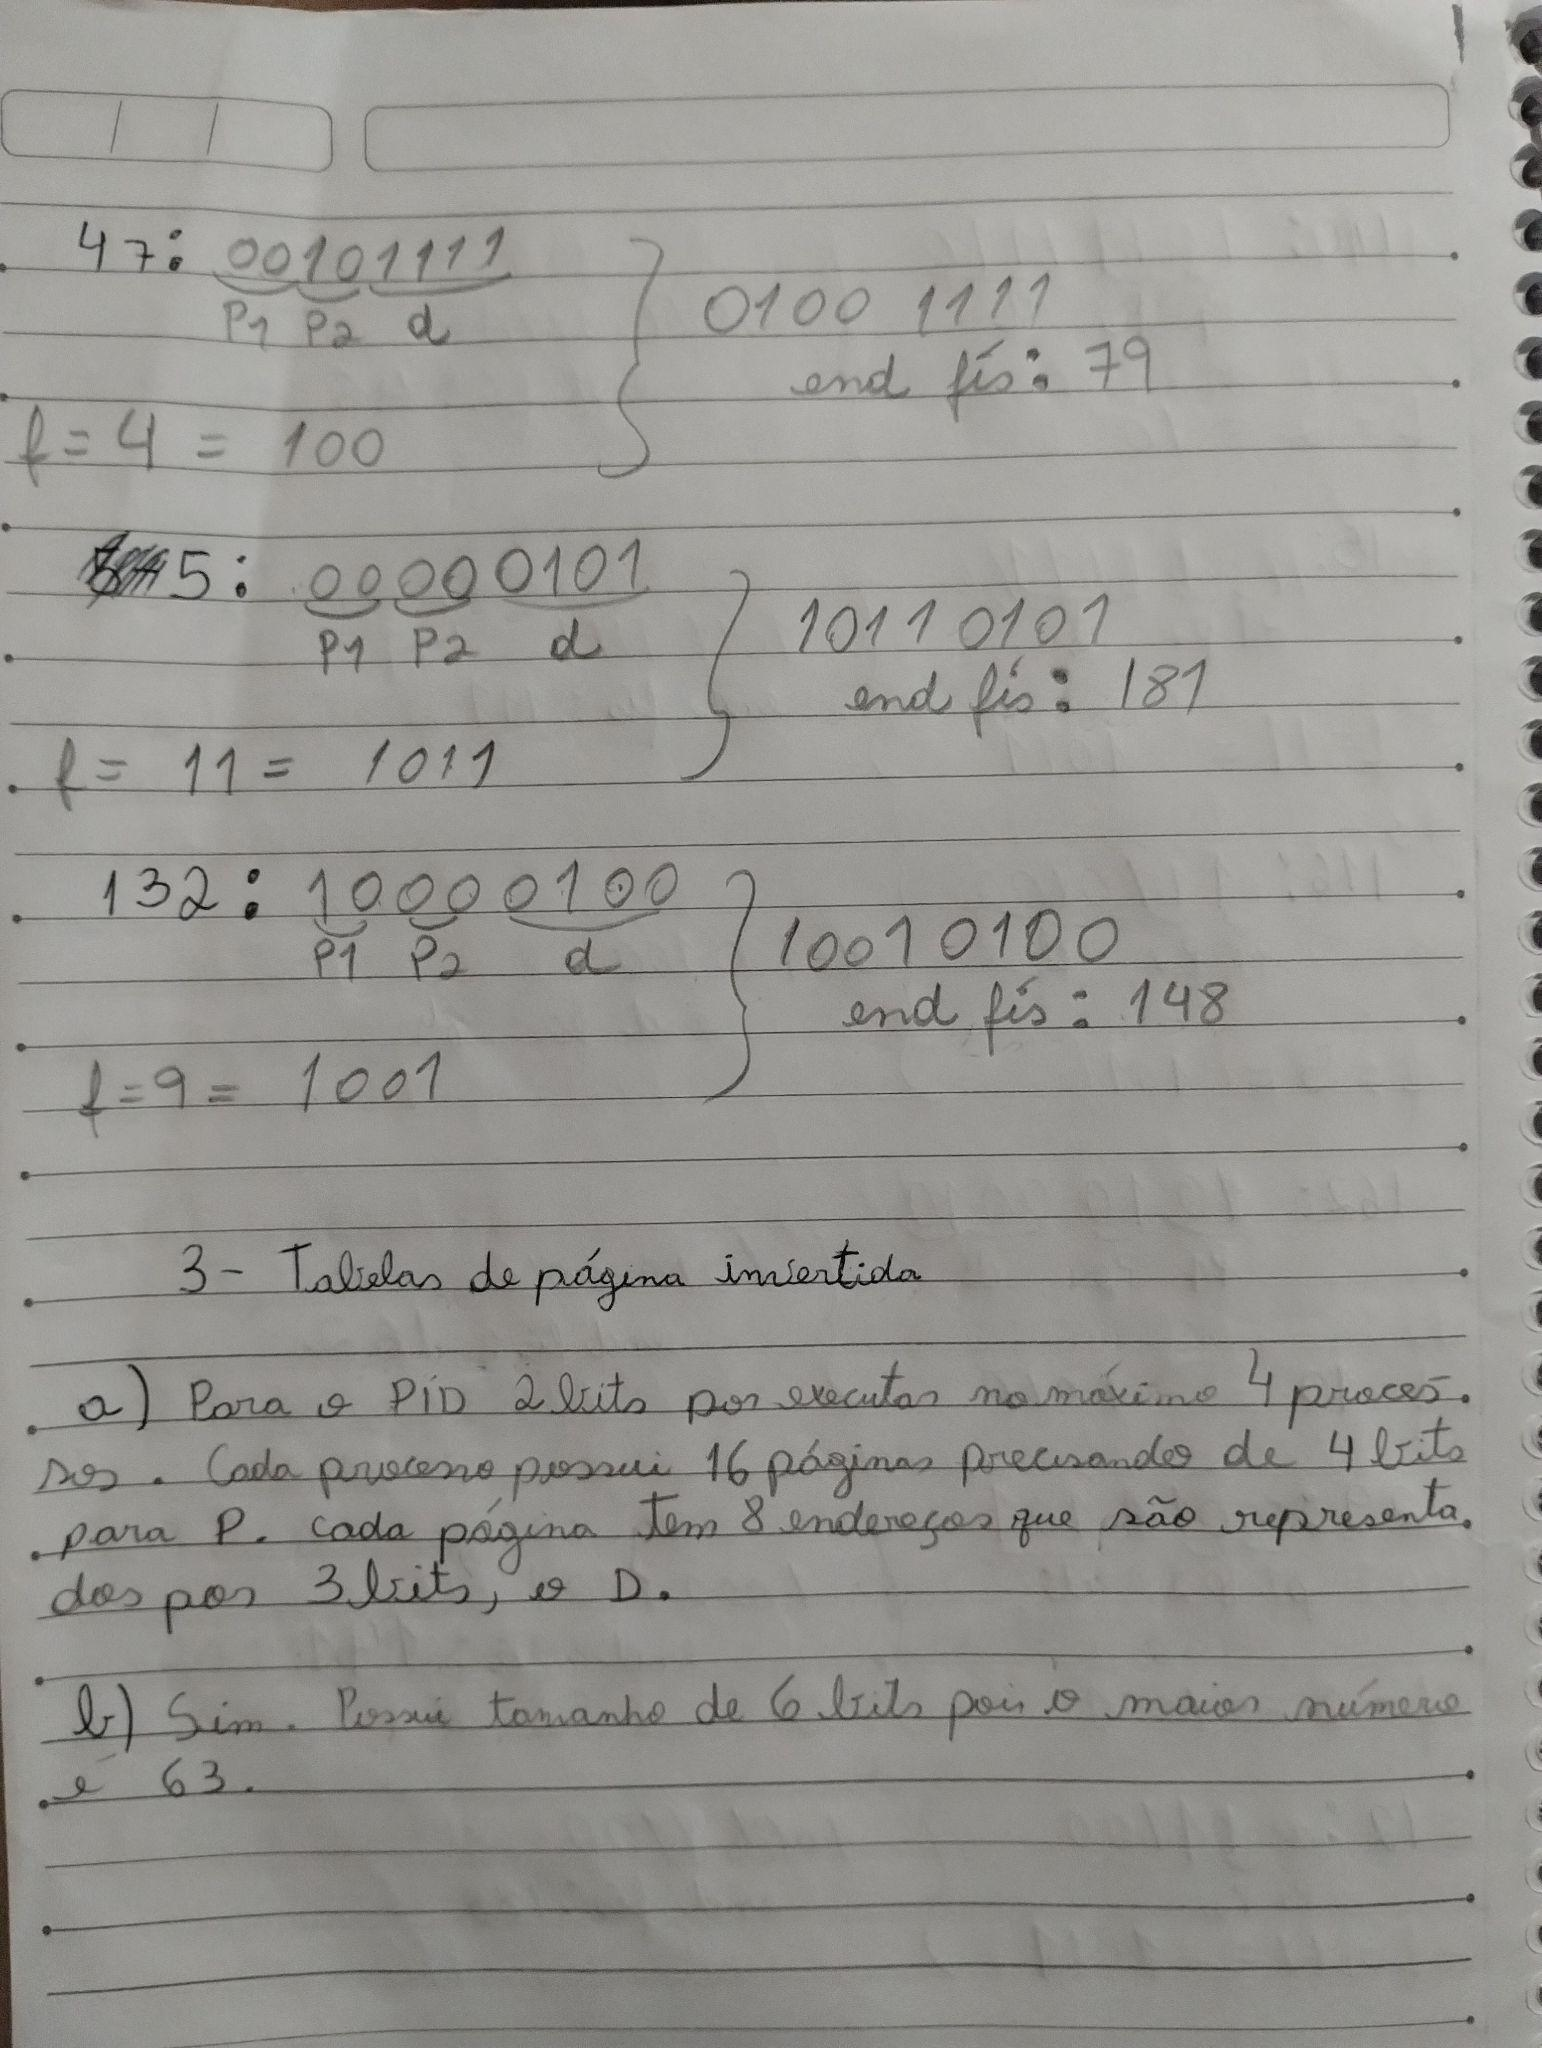 47: 00101111
P1 P2 d
0100 1111
end fís: 79
f = 4 = 100
5: 00000101
P1 P2 d
10110101
end fís: 181
f = 11 = 1011
132: 10000100
P1 P2 d
10010100
end fís: 148
f = 9 = 1001
3- Tabelas de página invertida
a) Para o PID 2 bits por executar no máximo 4 proces-
sos. Cada processo possui 16 páginas precisando de 4 bits
para P. Cada página tem 8 endereços que são representa-
dos por 3 bits, o D.
b) Sim. Possui tamanho de 6 bits pois o maior número
é 63.